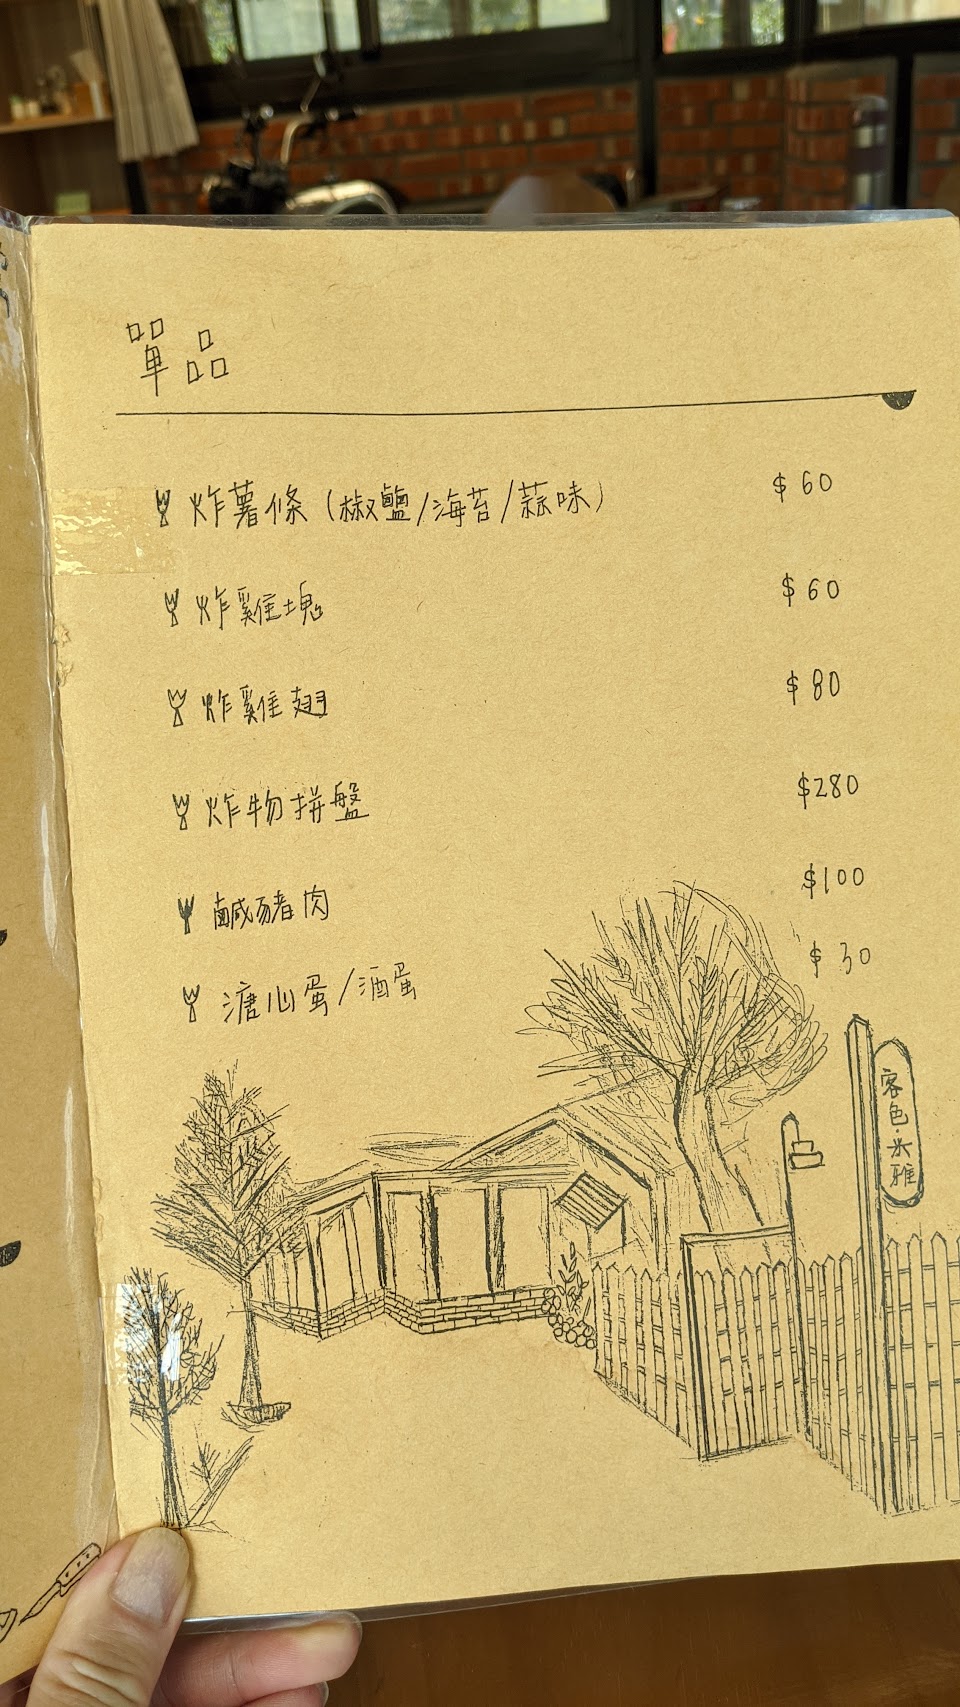 單品
炸薯條（椒鹽/海苔/蒜味） $60
炸雞塊 $60
炸雞翅 $80
炸物拼盤 $280
鹹豬肉 $100
溏心蛋/酒蛋 $30
客色·米雅